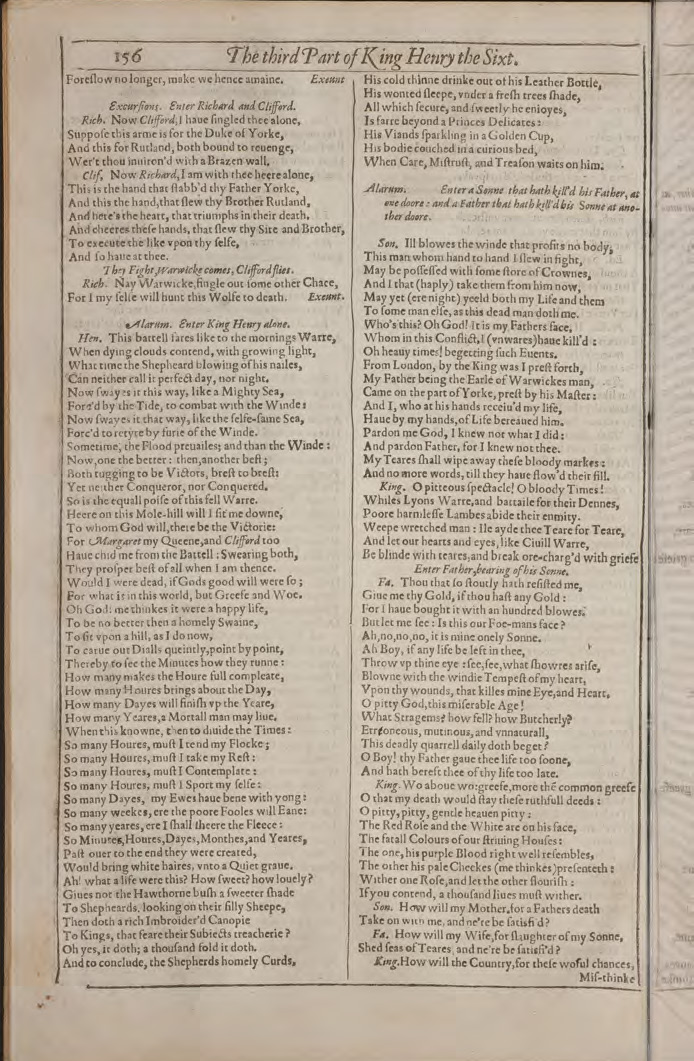 156 The third Part of King Henry the Sixt.
Foreslow no longer, make we hence amaine. Exeunt
Excursions. Enter Richard and Clifford.
Rich. Now Clifford, I haue singled thee alone,
Suppose this arme is for the Duke of Yorke,
And this for Rutland, both bound to reuenge,
Wer't thou inuiron'd with a Brazen wall.
Clif. Now Richard, I am with thee heere alone,
This is the hand that stabb'd thy Father Yorke,
And this the hand, that slew thy Brother Rutland,
And here's the heart, that triumphs in their death,
And cheeres these hands, that slew thy Sire and Brother,
To execute the like vpon thy selfe,
And so haue at thee.
They Fight, Warwicke comes, Clifford flies.
Rich. Nay Warwicke, single out some other Chace,
For I my selfe will hunt this Wolfe to death. Exeunt.
Alarum. Enter King Henry alone.
Hen. This battell fares like to the mornings Warre,
When dying clouds contend, with growing light,
What time the Shepheard blowing of his nailes,
Can neither call it perfect day, nor night.
Now swayes it this way, like a Mighty Sea,
Forc'd by the Tide, to combat with the Winde:
Now swayes it that way, like the selfe-same Sea,
Forc'd to retyre by furie of the Winde.
Sometime, the Flood preuailes; and than the Winde:
Now, one the better: then, another best;
Both tugging to be Victors, brest to brest:
Yet neither Conqueror, nor Conquered.
So is the equall poise of this fell Warre.
Heere on this Mole-hill will I sit me downe,
To whom God will, there be the Victorie:
For Margaret my Queene, and Clifford too
Haue chid me from the Battell: Swearing both,
They prosper best of all when I am thence.
Would I were dead, if Gods good will were so;
For what is in this world, but Greefe and Woe.
Oh God! me thinkes it were a happy life,
To be no better then a homely Swaine,
To sit vpon a hill, as I do now,
To carue out Dialls queintly, point by point,
Thereby to see the Minutes how they runne:
How many makes the Houre full compleate,
How many Houres brings about the Day,
How many Dayes will finish vp the Yeare,
How many Yeares, a Mortall man may liue.
When this is knowne, then to diuide the Times:
So many Houres, must I tend my Flocke;
So many Houres, must I take my Rest:
So many Houres, must I Contemplate:
So many Houres, must I Sport my selfe:
So many Dayes, my Ewes haue bene with yong:
So many weekes, ere the poore Fooles will Eane:
So many yeares, ere I shall sheere the Fleece:
So Minutes, Houres, Dayes, Monthes, and Yeares,
Past ouer to the end they were created,
Would bring white haires, vnto a Quiet graue.
Ah! what a life were this? How sweet? how louely?
Giues not the Hawthorne bush a sweeter shade
To Shepheards, looking on their silly Sheepe,
Then doth a rich Imbroider'd Canopie
To Kings, that feare their Subiects treacherie?
Oh yes, it doth; a thousand fold it doth.
And to conclude, the Shepherds homely Curds,
His cold thinne drinke out of his Leather Bottle,
His wonted sleepe, vnder a fresh trees shade,
All which secure, and sweetly he enioyes,
Is farre beyond a Princes Delicates:
His Viands sparkling in a Golden Cup,
His bodie couched in a curious bed,
When Care, Mistrust, and Treason waits on him.
Alarum. Enter a Sonne that hath kill'd his Father, at
one doore: and a Father that hath kill'd his Sonne at ano-
ther doore.
Son. Ill blowes the winde that profits no body,
This man whom hand to hand I slew in fight,
May be possessed with some store of Crownes,
And I that (haply) take them from him now,
May yet (ere night) yeeld both my Life and them
To some man else, as this dead man doth me.
Who's this? Oh God! It is my Fathers face,
Whom in this Conflict, I (vnwares) haue kill'd:
Oh heauy times! begetting such Euents.
From London, by the King was I prest forth,
My Father being the Earle of Warwickes man,
Came on the part of Yorke, prest by his Master:
And I, who at his hands receiu'd my life,
Haue by my hands, of Life bereaued him.
Pardon me God, I knew not what I did:
And pardon Father, for I knew not thee.
My Teares shall wipe away these bloody markes:
And no more words, till they haue flow'd their fill.
King. O pitteous spectacle! O bloody Times!
Whiles Lyons Warre, and battaile for their Dennes,
Poore harmlesse Lambes abide their enmity.
Weepe wretched man: Ile ayde thee Teare for Teare,
And let our hearts and eyes, like Ciuill Warre,
Be blinde with teares, and break ore-charg'd with griefe
Enter Father, bearing of his Sonne.
Fa. Thou that so stoutly hath resisted me,
Giue me thy Gold, if thou hast any Gold:
For I haue bought it with an hundred blowes.
But let me see: Is this our Foe-mans face?
Ah, no, no, no, it is mine onely Sonne.
Ah Boy, if any life be left in thee,
Throw vp thine eye: see, see, what showres arise,
Blowne with the windie Tempest of my heart,
Vpon thy wounds, that killes mine Eye, and Heart.
O pitty God, this miserable Age!
What Stragems? how fell? how Butcherly?
Erreoneous, mutinous, and vnnaturall,
This deadly quarrell daily doth beget?
O Boy! thy Father gaue thee life too soone,
And hath bereft thee of thy life too late.
King. Wo aboue wo: greefe, more thē common greefe
O that my death would stay these ruthfull deeds:
O pitty, pitty, gentle heauen pitty:
The Red Rose and the White are on his face,
The fatall Colours of our striuing Houses:
The one, his purple Blood right well resembles,
The other his pale Cheekes (me thinkes) presenteth:
Wither one Rose, and let the other flourish:
If you contend, a thousand liues must wither.
Son. How will my Mother, for a Fathers death
Take on with me, and ne're be satisfi'd?
Fa. How will my Wife, for slaughter of my Sonne,
Shed seas of Teares, and ne're be satisfi'd?
King. How will the Country, for these woful chances,
Mis-thinke